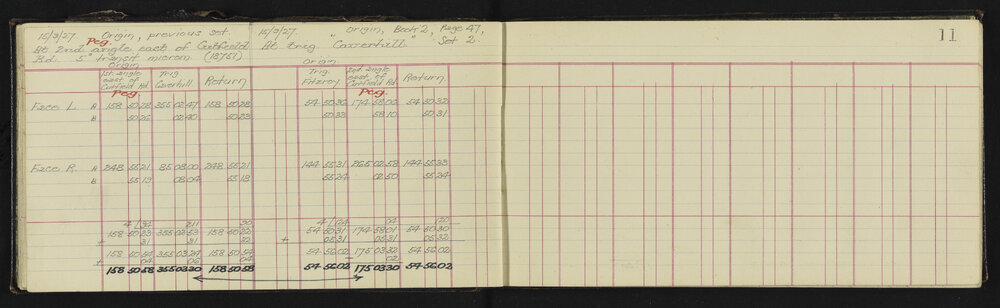 15/9/27. Origin, previous set.
Peg.
At 2nd angle east of Cutfield
Rd. 5" transit microm. (18751)
15/9/27. " Origin, Book 2, Page 47,
At Trig. Caverhill" Set 2.
Origin Origin
1st angle east of Cutfield Rd. Trig Caverhill Return Trig. Fitzroy 2nd angle east of Cutfield Rd. Return
Peg. Peg.
Face L. A 158 50 28 355 02 47 158 50 28 54 50 36 174 58 06 54 50 32
B 50 26 02 40 50 23 50 33 58 10 50 31
Face R. A 248 55 21 85 08 00 248 55 21 144 55 31 265 02 58 144 55 33
B 55 19 08 04 55 18 55 24 02 50 55 24
158 50 23 355 02 53 158 50 22 54 50 31 174 58 01 54 50 30
+ 31 31 32 + 05 31 05 31 05 32
158 50 54 355 03 24 158 50 54 54 56 02 175 03 32 54 56 02
+ 04 06 04 02
158 50 58 355 03 30 158 50 58 54 56 02 175 03 30 54 56 02
11